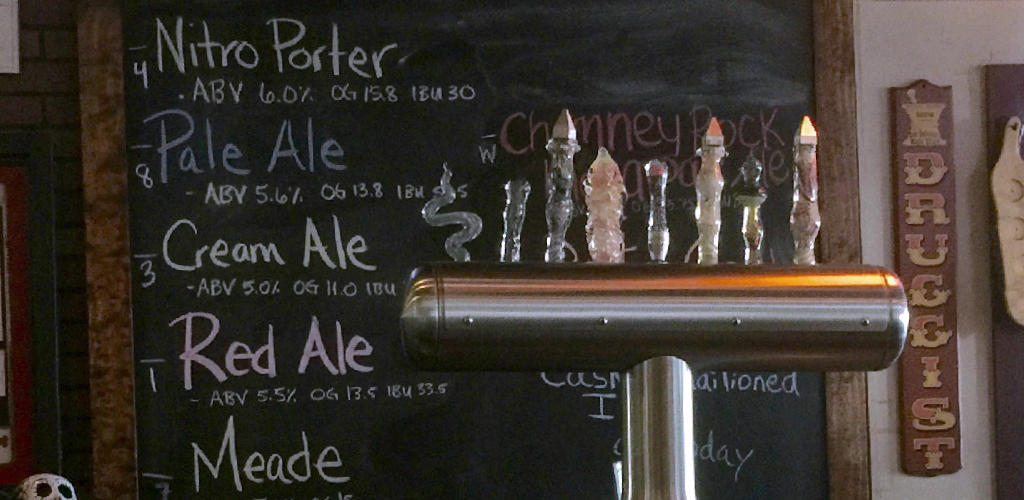 4 Nitro Porter
. ABV 6.0% OG 15.8 IBU 30
8 Pale Ale
- ABV 5.6% OG 13.8 IBU
3 Cream Ale
- ABV 5.0% OG 11.0 IBU
1 Red Ale
- ABV 5.5% OG 13.5 IBU 33.5
Meade
W Chimney Rock
DRUGGIST